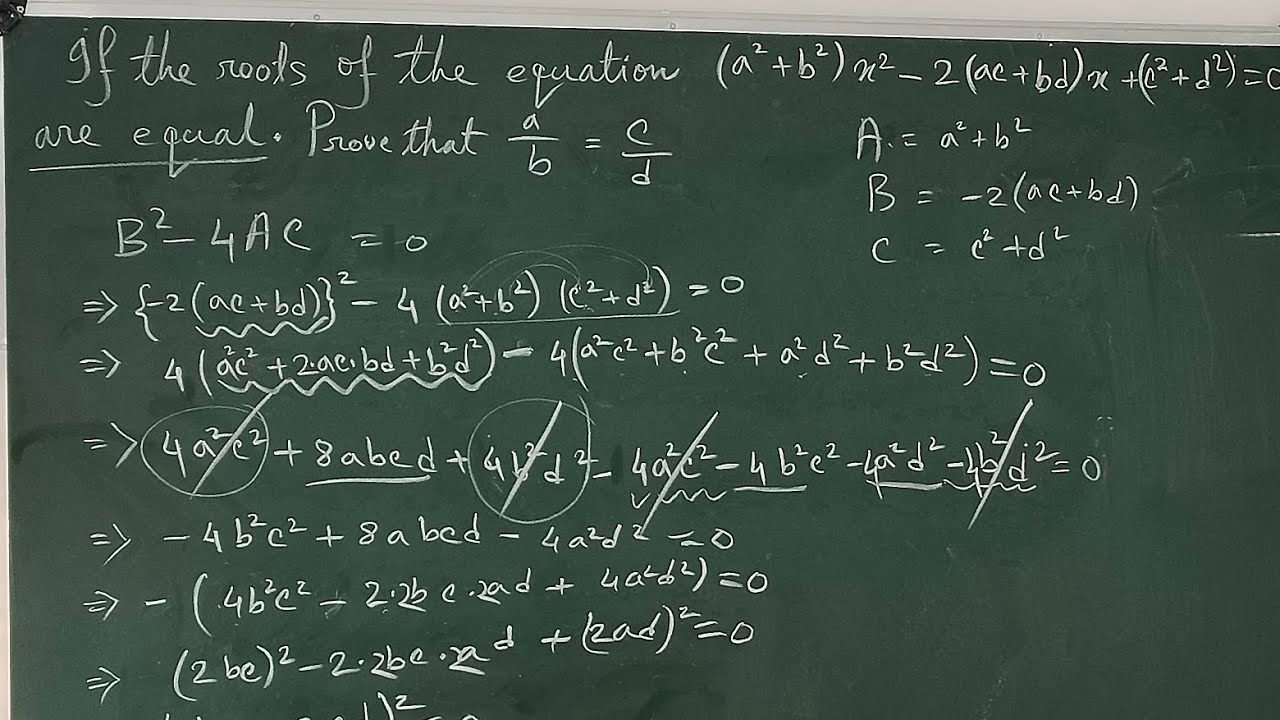 If the roots of the equation (a²+b²)x² - 2(ac+bd)x + (c²+d²) = 0
are equal. Prove that a/b = c/d
A = a²+b²
B = -2(ac+bd)
C = c²+d²
B² - 4AC = 0
⇒ {-2(ac+bd)}² - 4(a²+b²)(c²+d²) = 0
⇒ 4(a²c² + 2·ac·bd + b²d²) - 4(a²c² + b²c² + a²d² + b²d²) = 0
⇒ 4a²c² + 8abcd + 4b²d² - 4a²c² - 4b²c² - 4a²d² - 4b²d² = 0
⇒ -4b²c² + 8abcd - 4a²d² = 0
⇒ -(4b²c² - 2·2bc·2ad + 4a²d²) = 0
⇒ (2bc)² - 2·2bc·2ad + (2ad)² = 0